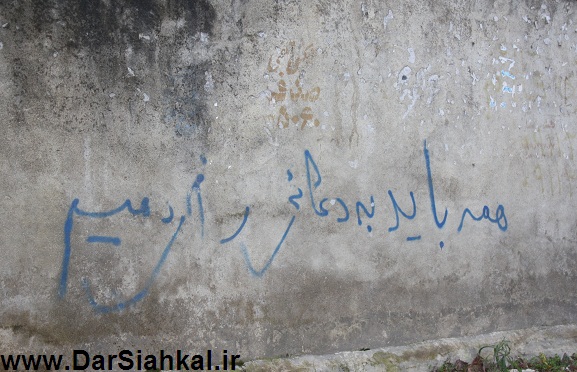 همه باید به دهگانی رأی دهیم
www.DarSiahkal.ir